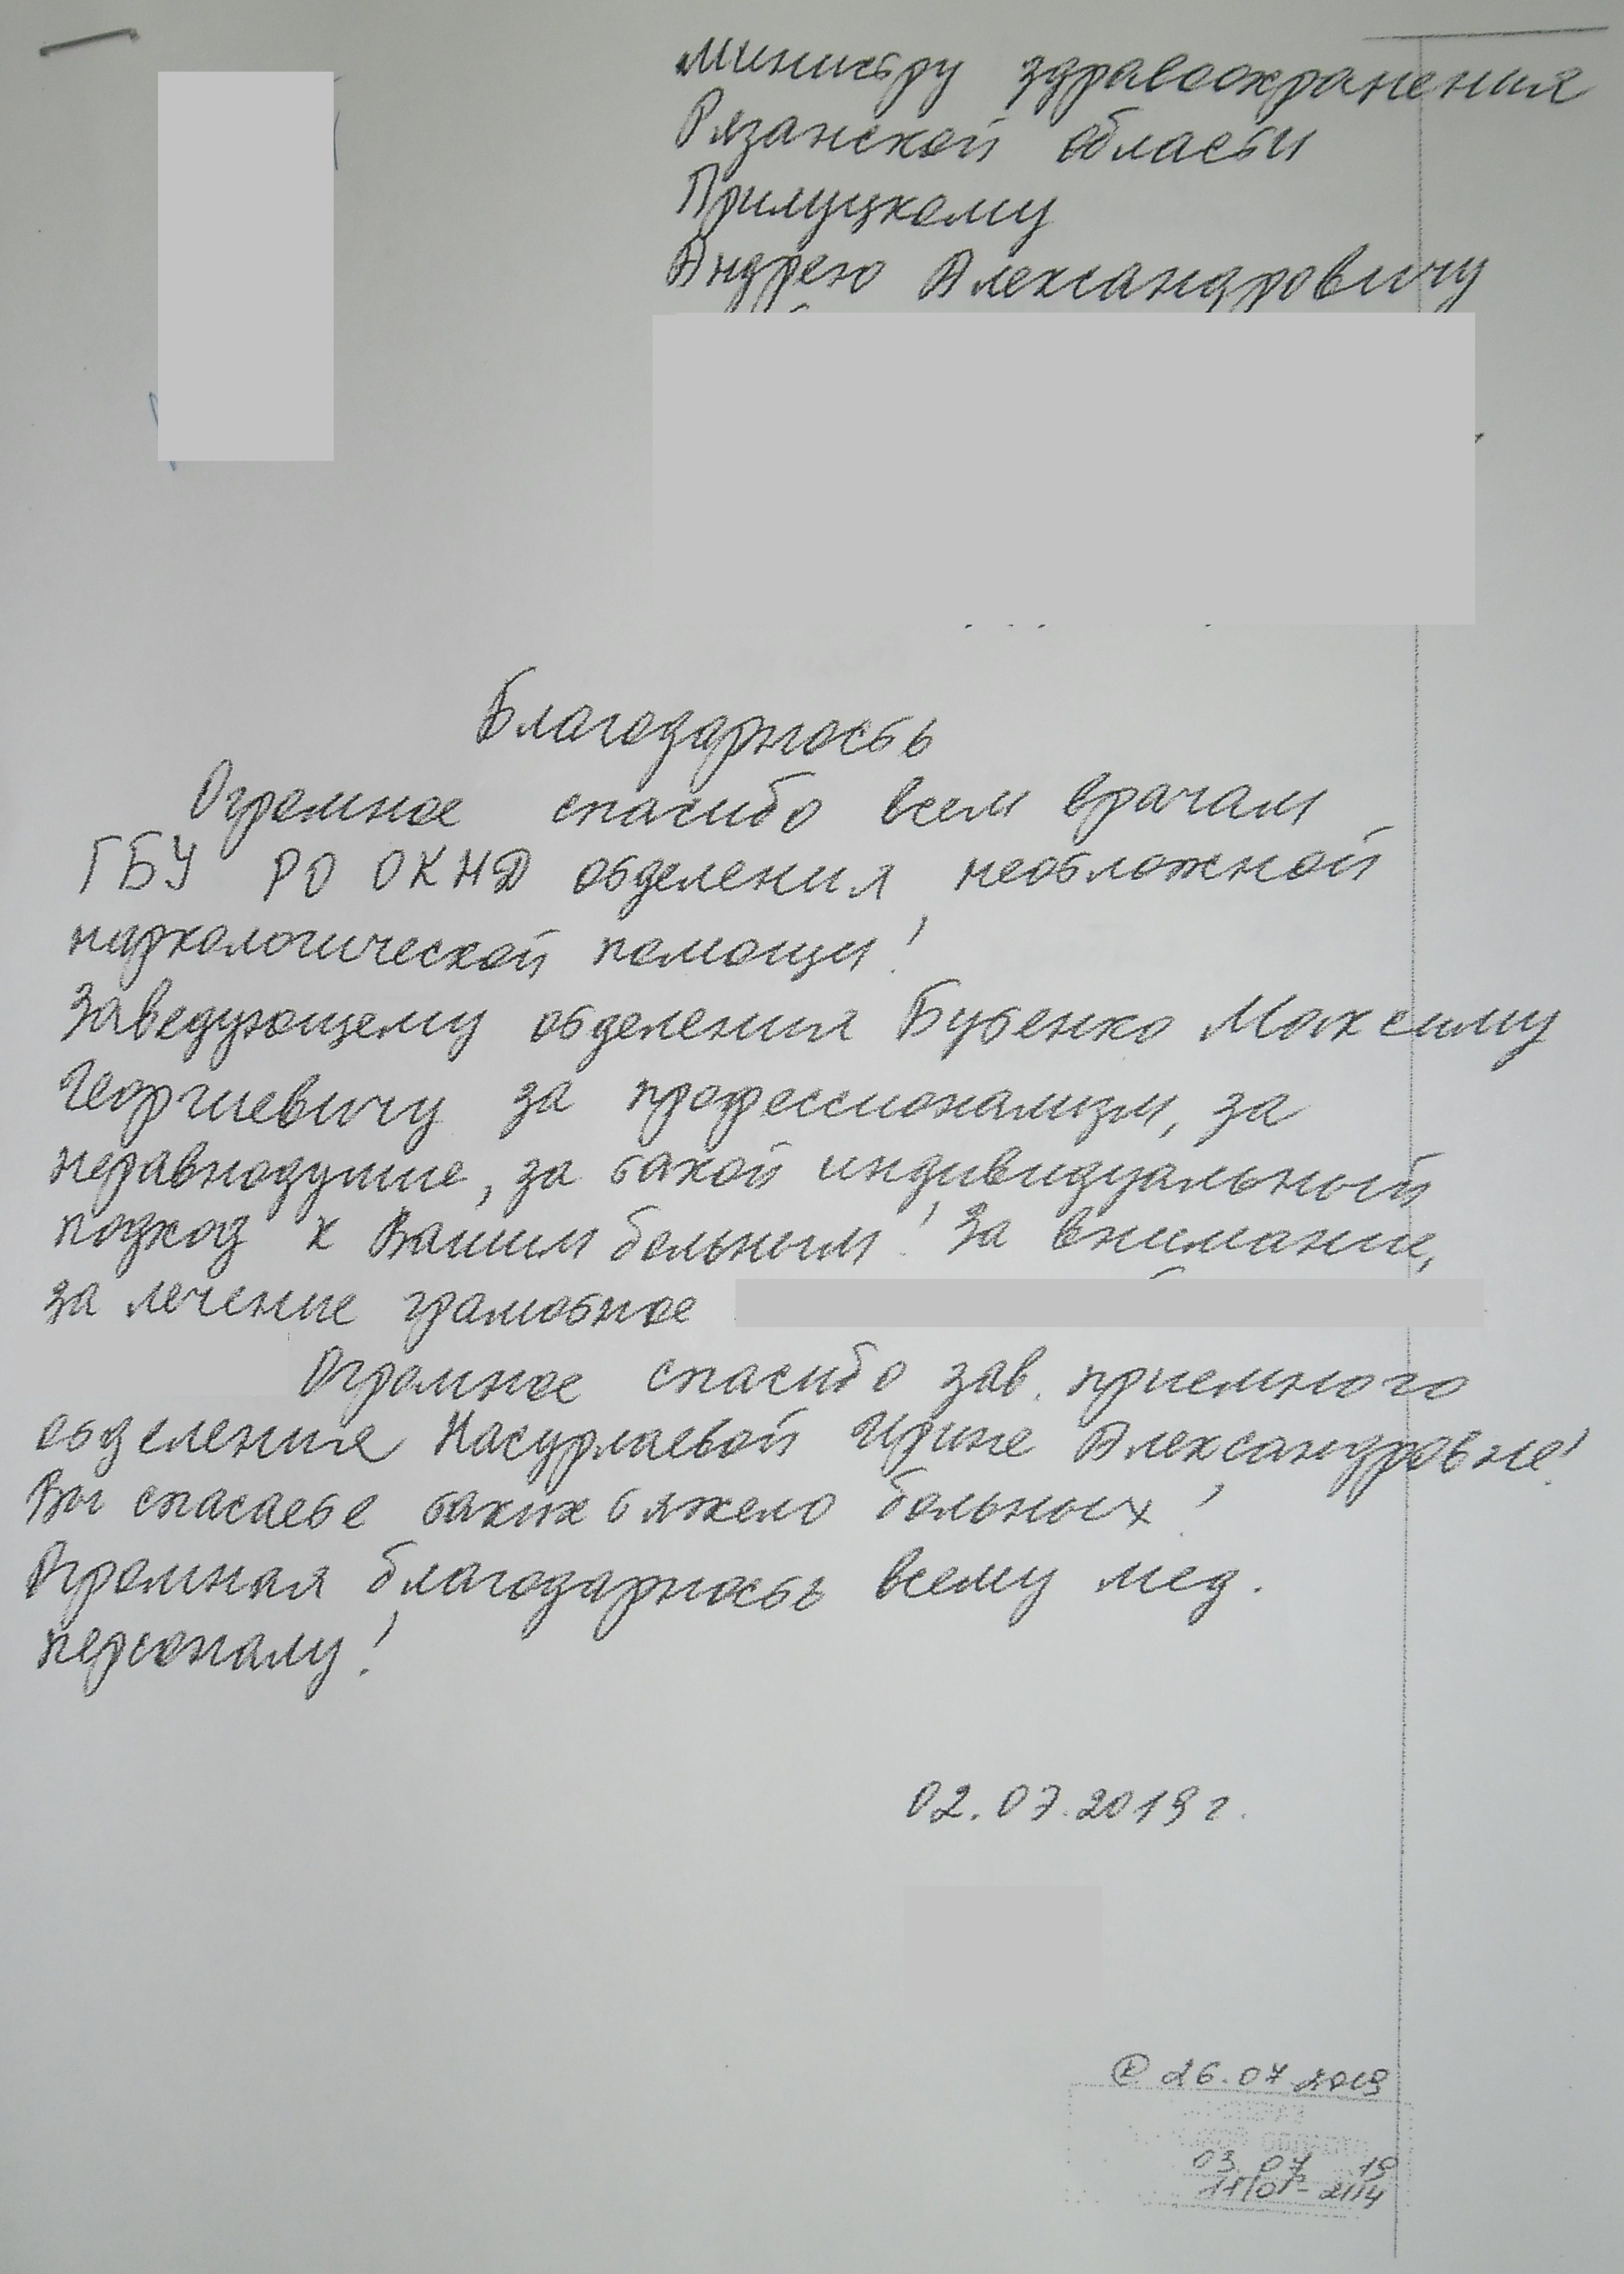 Министру здравоохранения
Рязанской области
Прилуцкому
Андрею Александровичу
Благодарность
Огромное спасибо всем врачам
ГБУ РО ОКНД отделения неотложной
наркологической помощи!
Заведующему отделения Бутенко Максиму
Георгиевичу за профессионализм, за
неравнодушие, за такой индивидуальный
подход к Вашим больным! За внимание,
за лечение грамотное
Огромное спасибо зав. приемного
отделения Ирине Александровне!
Вы спасаете таких тяжело больных!
Огромная благодарность всему мед.
персоналу!
02.07.2019 г.
26.07 2019
03 07 19